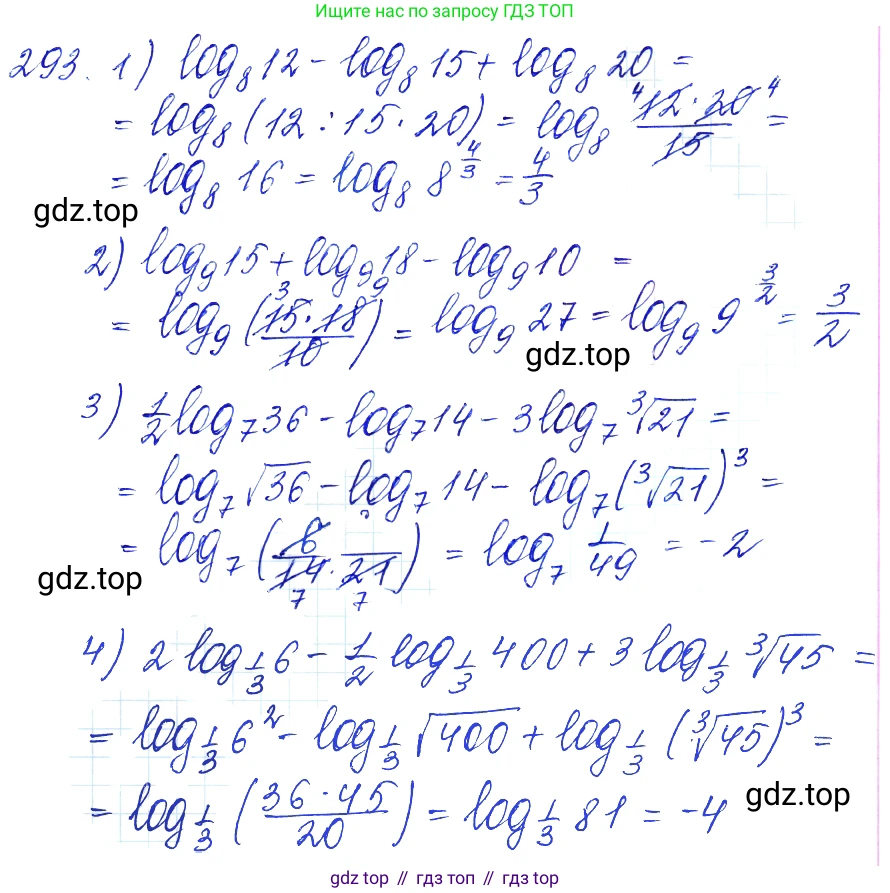 Ищите нас по запросу ГДЗ ТОП
293. 1) log₈12 - log₈15 + log₈20 =
= log₈(12 : 15 · 20) = log₈ ⁴12 · 20⁴/15 =
= log₈16 = log₈8^(4/3) = 4/3
gdz.top
2) log₉15 + log₉18 - log₉10 =
= log₉(³15 · 18⁹/10) = log₉27 = log₉9^(3/2) = 3/2
gdz.top
3) 1/2 log₇36 - log₇14 - 3log₇∛21 =
= log₇√36 - log₇14 - log₇(∛21)³ =
= log₇(6/14 · 21) = log₇ 1/49 = -2
7 7
gdz.top
4) 2 log_(1/3) 6 - 1/2 log_(1/3) 400 + 3 log_(1/3) ∛45 =
= log_(1/3) 6² - log_(1/3) √400 + log_(1/3) (∛45)³ =
= log_(1/3) (36 · 45/20) = log_(1/3) 81 = -4
gdz.top
gdz.top // гдз.топ // гдз топ